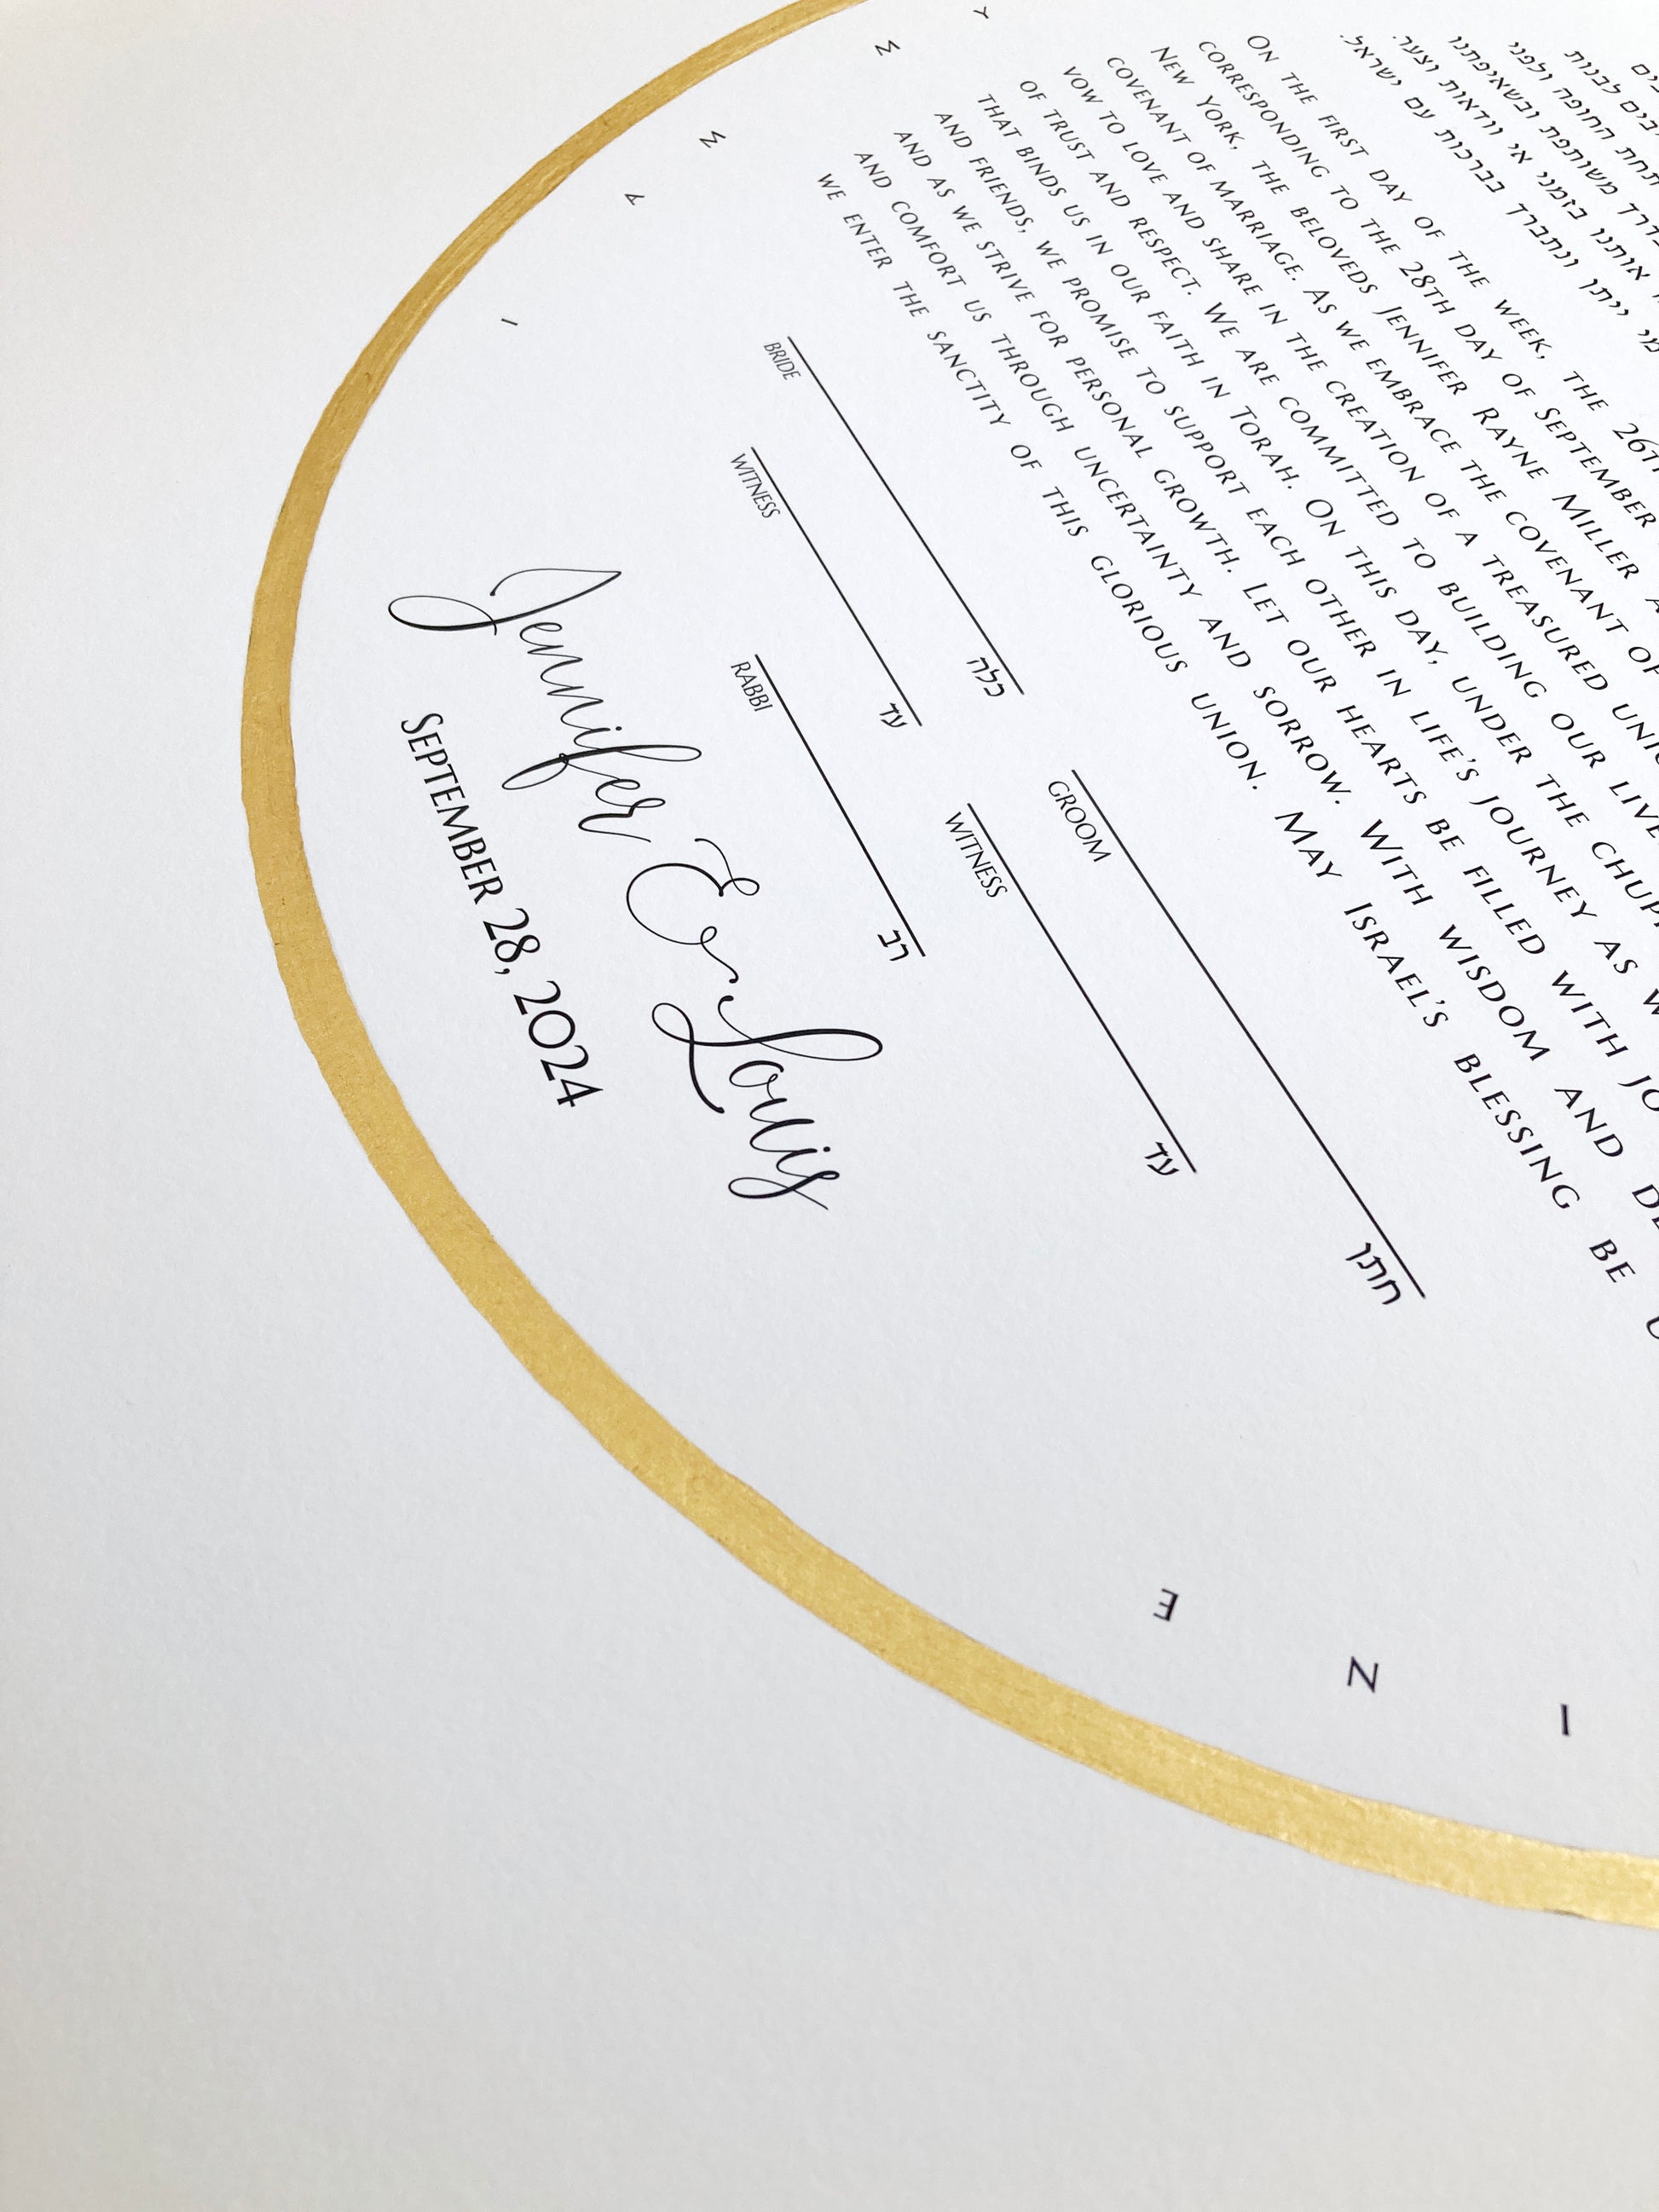 בים
בים לבנות
תחת החופה ולפני
בדרך משותפת ובשאיפתנו
אותנו בזמני אי וודאות וצער.
מי ייתן ונתברך בברכות עם ישראל.
On the first day of the week, the 26th
corresponding to the 28th day of September
New York, the beloveds Jennifer Rayne Miller
covenant of marriage. As we embrace the covenant of
vow to love and share in the creation of a treasured
of trust and respect. We are committed to building our
that binds us in our faith in Torah. On this day, under the
and friends, we promise to support each other in life's journey as
and as we strive for personal growth. Let our hearts be filled with
and comfort us through uncertainty and sorrow. With wisdom and
we enter the sanctity of this glorious union. May Israel's blessing be
BRIDE כלה GROOM חתן
WITNESS עד WITNESS עד
RABBI רב
Jennifer & Louis
September 28, 2024
I A M M Y
I N E